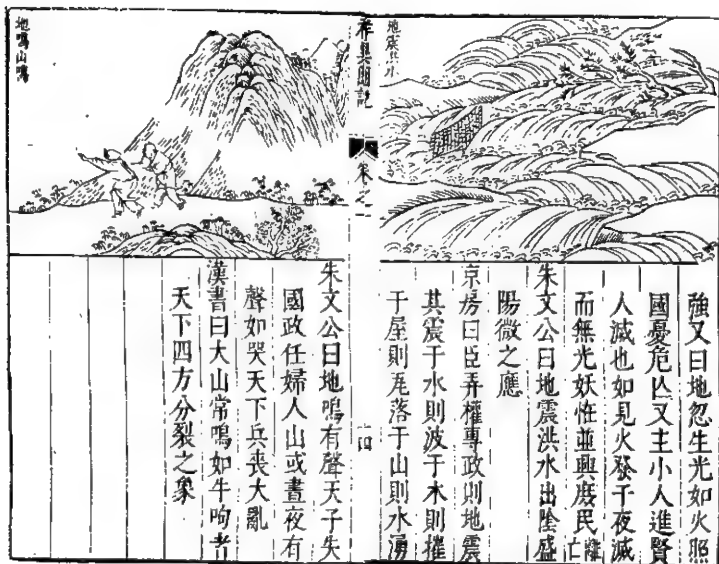 地震洪水
強又曰地忽生光如火照
國憂危亾又主小人進賢
人滅也如見火發于夜滅
而無光妖恠並興庶民離亡
朱文公曰地震洪水出陰盛
陽微之應
京房曰臣弄權專政則地震
其震于水則波于木則摧
于屋則瓦落于山則水湧
祥異圖說
卷之一
十四
地鳴山鳴
朱文公曰地鳴有聲天子失
國政任婦人山或晝夜有
聲如哭天下兵喪大亂
漢書曰大山常鳴如牛呴者
天下四方分裂之象